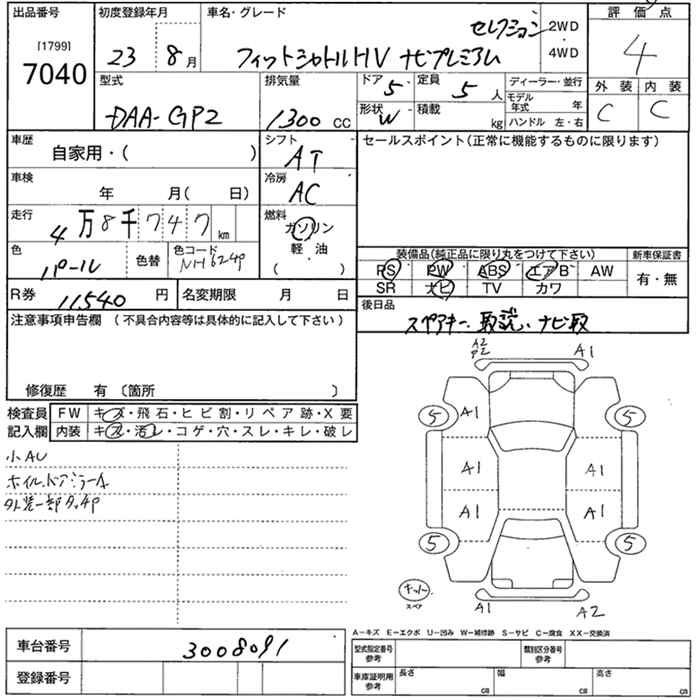 出品番号 初度登録年月 車名・グレード 評価点
[1799] 7040
23 8月
フィットシャトルHV ナビプレミアム
セレクション
2WD
4WD
4
型式 排気量 ドア 定員 ディーラー・並行 外装 内装
DAA-GP2 1300 CC 5 5 人 モデル年式 年 C C
形状 W 積載 kg ハンドル 左・右
車歴 シフト セールスポイント(正常に機能するものに限ります)
自家用・( ) AT
車検 冷房
年 月( 日) AC
走行 燃料
4万8千747km ガソリン
軽・油
( )
色 色替 色コード
パール NH624P
装備品(純正品に限り丸をつけて下さい) 新車保証書
PS PW ABS エアB AW 有・無
SR ナビ TV カワ
R券 11540 円 名変期限 月 日
後日品
スペアキー、取説、ナビ取
注意事項申告欄 (不具合内容等は具体的に記入して下さい)
修復歴 有 〔箇所 〕
検査員 FW キズ・飛石・ヒビ割・リペア跡・X要
記入欄 内装 キズ・汚レ・コゲ・穴・スレ・キレ・破レ
小AU
ホイル、ドアミラーA
外装一部タッチP
A2
P2
A1
5 A1 5
A1 A1
A1 A1
5 5
キット
スペア
A1 A2
A-キズ E-エクボ U-凹み W-補修跡 S-サビ C-腐食 XX-交換済
車台番号 3008091
型式指定番号 参考 類別区分番号 参考
登録番号
車庫証明用 参考 長さ cm 幅 cm 高さ cm